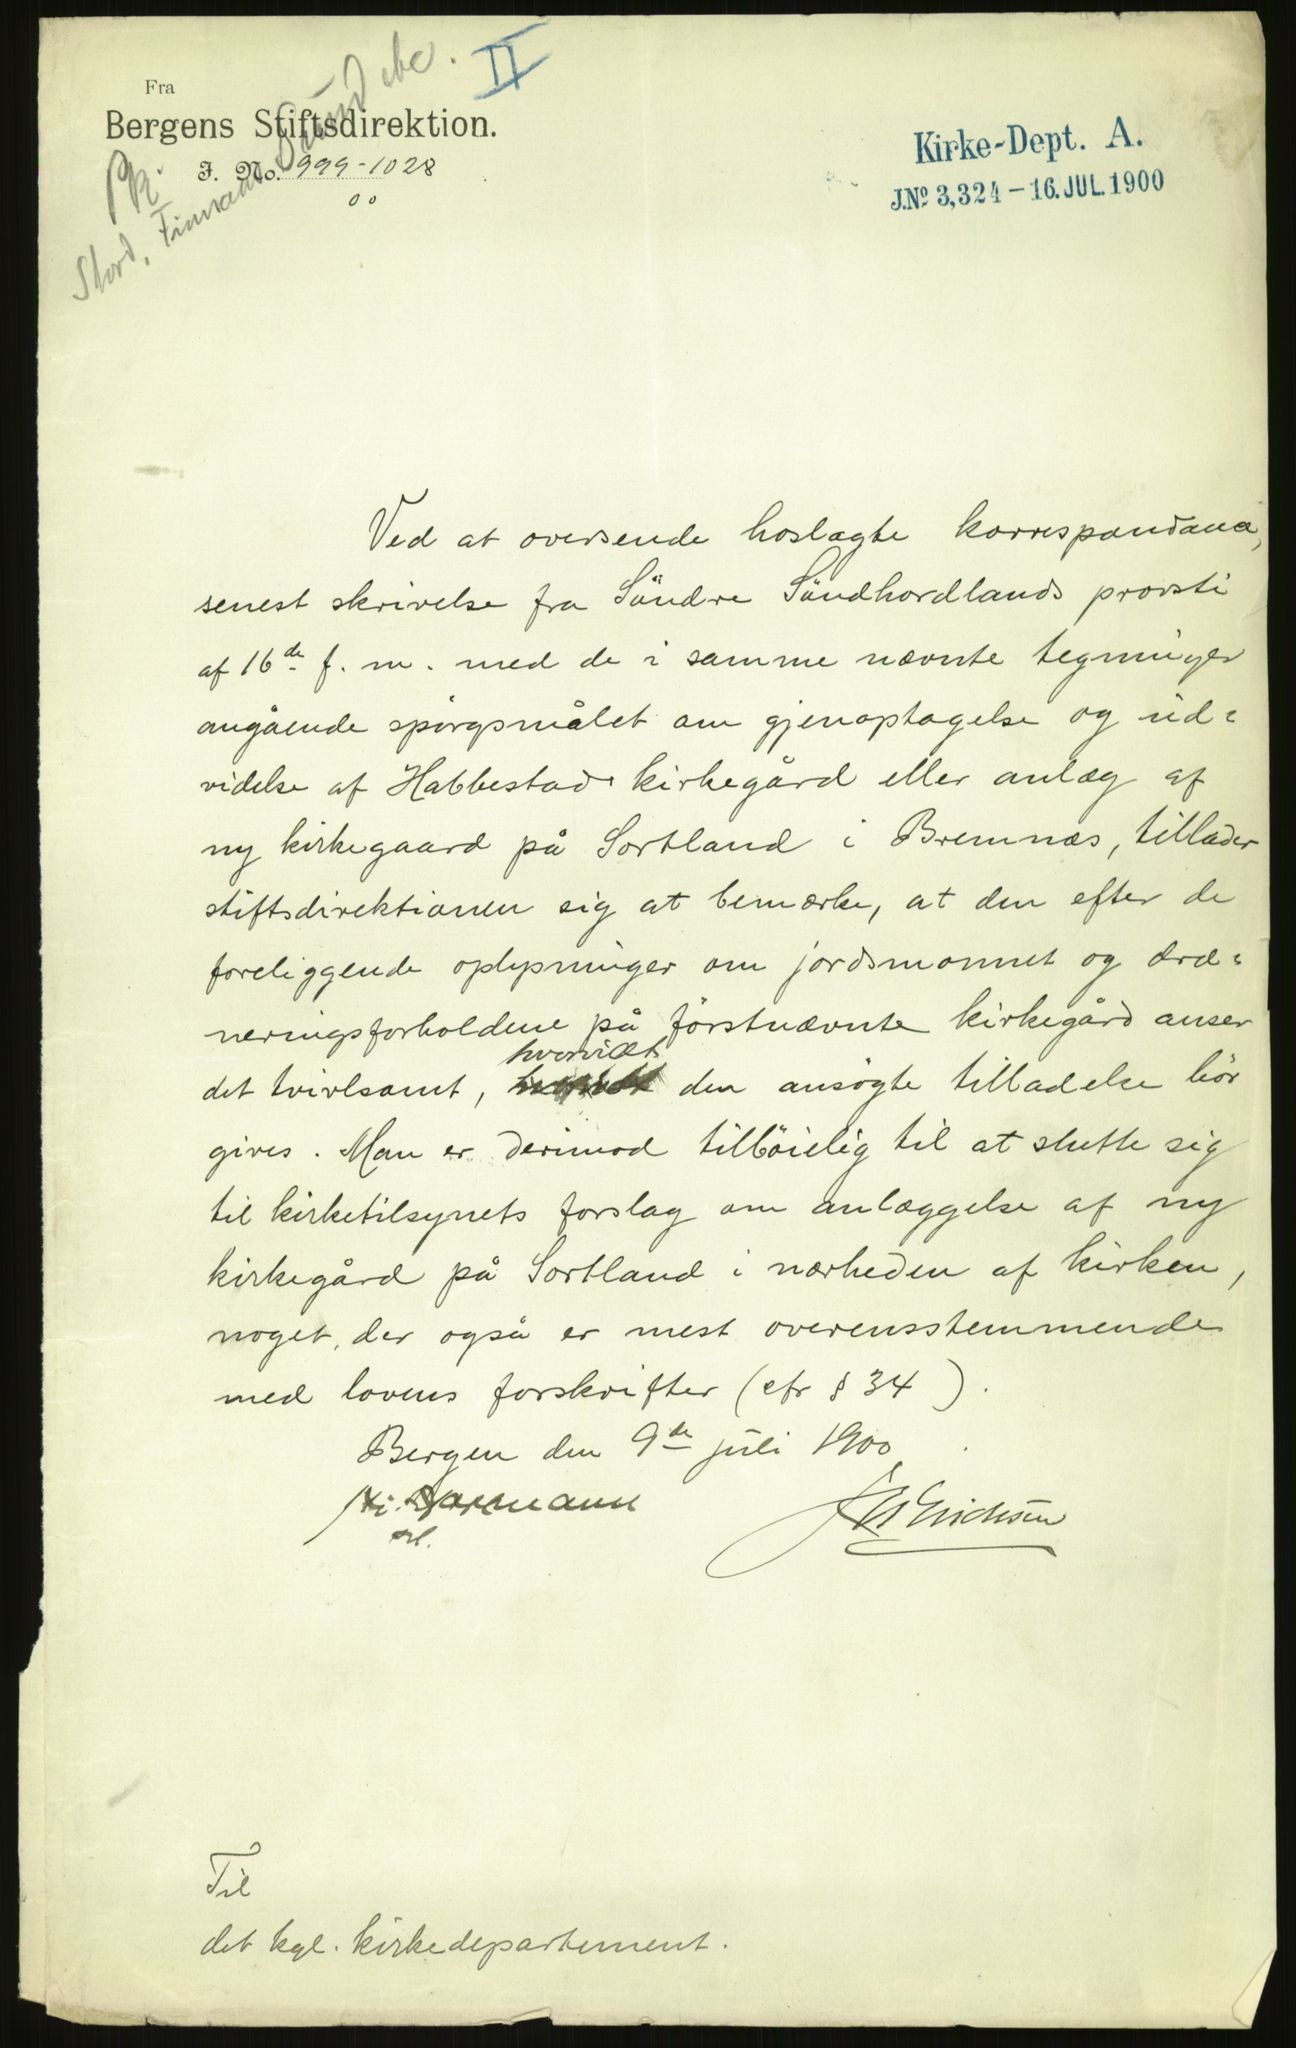 II
Fra
Bergens Stiftsdirektion.
J. No. 999-1028
00
Pk.
Stord, Sund etc.
Kirke-Dept. A.
J.No 3,324 – 16. JUL. 1900
Ved at oversende hoslagte korrespondance,
senest skrivelse fra Söndre Söndhordlands provsti
af 16de f. m. med de i samme nævnte tegninger
angående spörgsmålet om gjenoptagelse og ud=
videlse af Habbestad kirkegård eller anlæg af
ny kirkegaard på Sortland i Bremnæs, tillader
stiftsdirektionen sig at bemærke, at den efter de
foreliggende oplysninger om jordsmonnet og dræ=
neringsforholdene på förstnævnte kirkegård anser
det tvivlsomt, hvorvidt den ansögte tilladelse bör
gives. Man er derimod tilböielig til at slutte sig
til kirketilsynets forslag om anlæggelse af ny
kirkegård på Sortland i nærheden af kirken,
noget, der også er mest overensstemmende
med lovens forskrifter (cfr § 34).
Bergen den 9de juli 1900
Erichsen
Til
det kgl. kirkedepartement.